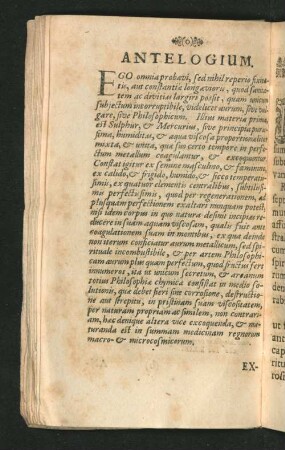 ANTELOGIUM.
EGO omnia probavi, sed nihil reperio fixio-
tis, aut constantiæ longævioris, quod sanita-
tem ac divitias largire possit, quam unicum
subjectum incorruptibile, videlicet aurum, sive vul-
gare, sive Philosophicum. Illius materia prima
est Sulphur, & Mercurius, sive principia puris-
sima, humiditas, & aqua viscosa proportionaliter
mixta, & unita, quæ suo certo tempore in perfe-
ctum metallum coagulantur, & excoquuntur.
Constat igitur ex semine masculino, & fæminino,
ex calido, & frigido, humido, & sicco temperatis-
simis, ex quatuor elementis centralibus, subtilissi-
mis perfectissimis, quod per regenerationem, ad
plusquam perfectionem exaltari nunquam potest,
nisi idem corpus in quo natura desinit incipias re-
ducere in suam aquam viscosam, qualis fuit ante
coagulationem suam in montibus, ex qua demum
non iterum conficiatur aurum metallicum, sed spi-
rituale incombustibile, & per artem Philosophi-
cam aurum plus quam perfectum, quod fructus fert
innumeros, ita ut unicum secretum, & arcanum
totius Philosophiæ chymicæ consistat in modo so-
lutionis, quæ debet fieri sine corrosione, destructio-
ne aut strepitu, in pristinam suam viscositatem,
per naturam propriam ac similem, non contrari-
am, hæc denique altera vice excoquenda, & ma-
turanda est in summam medicinam regnorum
macro- & microcosmicorum.
EX-